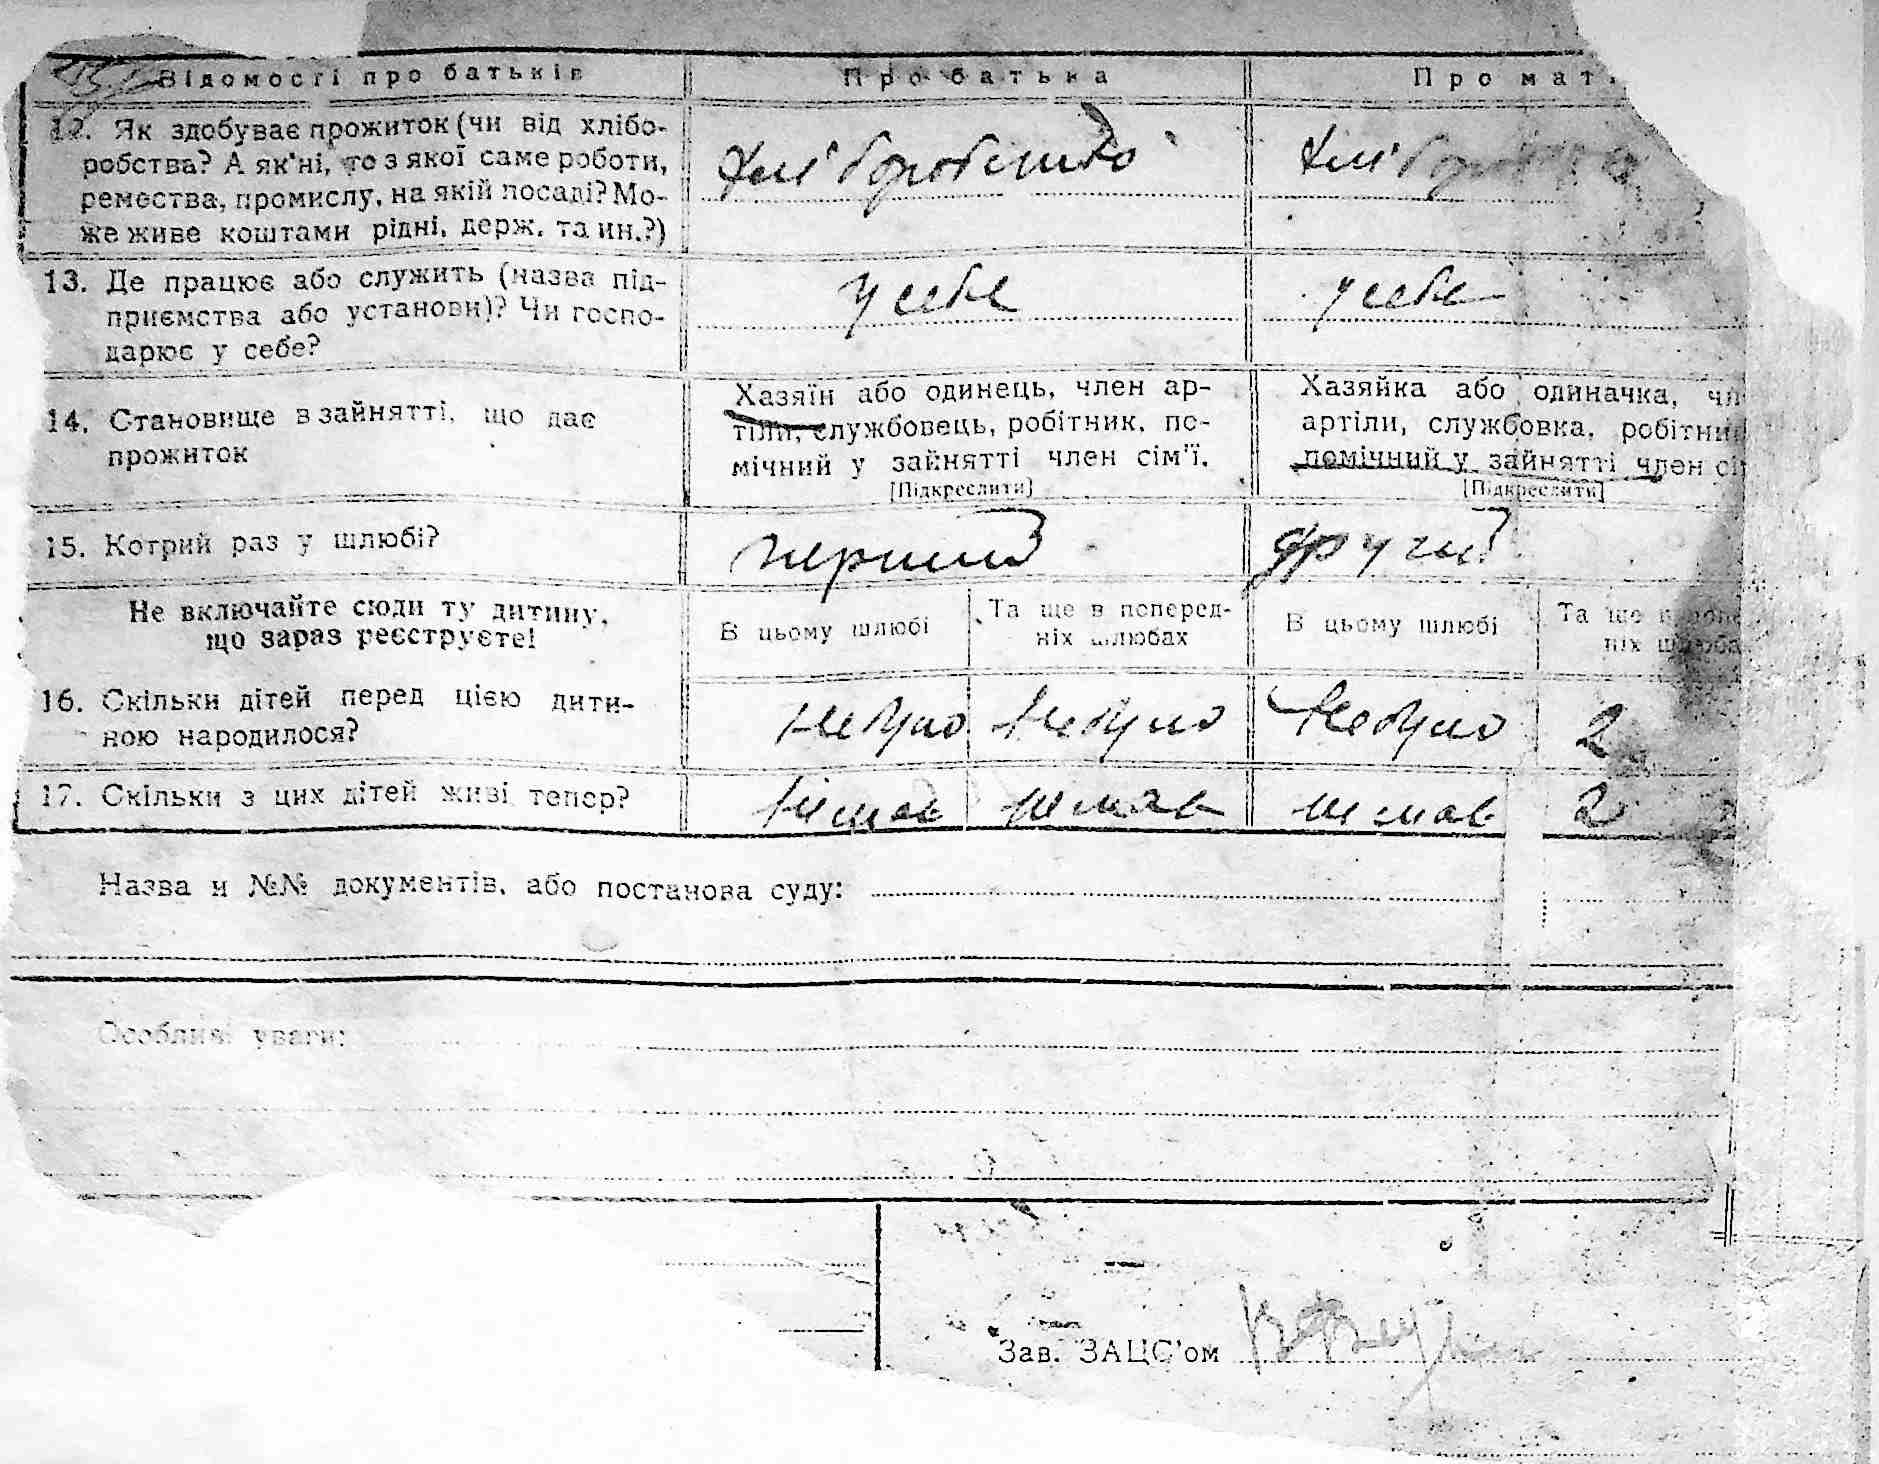 Відомості про батьків
Про батька
Про мат
12. Як здобуває прожиток (чи від хлібо-
робства? А як'ні, то з якої саме роботи,
ремества, промислу, на якій посаді? Мо-
же живе коштами рідні, держ. та ин.?)
Хліборобство
Хлібороб
13. Де працює або служить (назва під-
приємства або установи)? Чи госпо-
дарює у себе?
у себе
у себе
14. Становище в зайнятті, що дає
прожиток
Хазяїн або одинець, член ар-
тіли, службовець, робітник, по-
мічний у зайнятті член сім'ї.
[Підкреслити]
Хазяйка або одиначка, чл
артіли, службовка, робітни
помічний у зайнятті член сі
[Підкреслити]
15. Котрий раз у шлюбі?
перший
другий
Не включайте сюди ту дитину,
що зараз реєструєте!
В цьому шлюбі
Та ще в поперед-
ніх шлюбах
В цьому шлюбі
Та ще в попе
ніх шлюба
16. Скільки дітей перед цією дити-
ною народилося?
не було
не було
не було
2
17. Скільки з цих дітей живі тепер?
немає
немає
немає
2
Назва и №№ документів, або постанова суду:
Особливі уваги:
Зав. ЗАЦС'ом